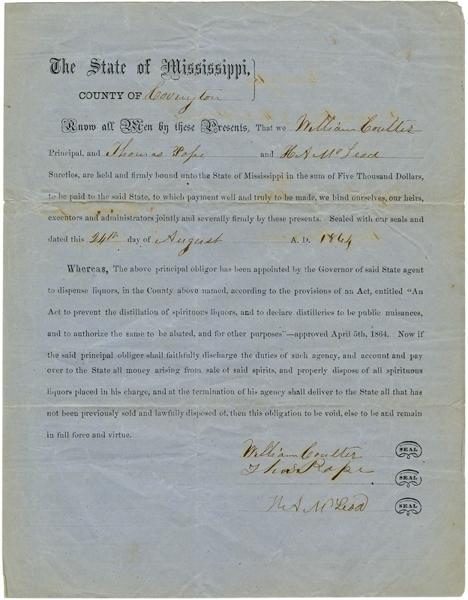 The State of Mississippi,
COUNTY OF Covington
Know all Men by these Presents, That we William Coulter
Principal, and Thomas Pope and H A McLeod
Sureties, are held and firmly bound unto the State of Mississippi in the sum of Five Thousand Dollars,
to be paid to the said State, to which payment well and truly to be made, we bind ourselves, our heirs,
executors and administrators jointly and severally firmly by these presents. Sealed with our seals and
dated this 24th day of August A. D. 1864
Whereas, The above principal obligor has been appointed by the Governor of said State agent
to dispense liquors, in the County above named, according to the provisions of an Act, entitled "An
Act to prevent the distillation of spirituous liquors, and to declare distilleries to be public nuisances,
and to authorize the same to be abated, and for other purposes"—approved April 5th, 1864. Now if
the said principal obligor shall faithfully discharge the duties of such agency, and account and pay
over to the State all money arising from sale of said spirits, and properly dispose of all spirituous
liquors placed in his charge, and at the termination of his agency shall deliver to the State all that has
not been previously sold and lawfully disposed of, then this obligation to be void, else to be and remain
in full force and virtue.
William Coulter SEAL
Thos Pope SEAL
McLeod SEAL